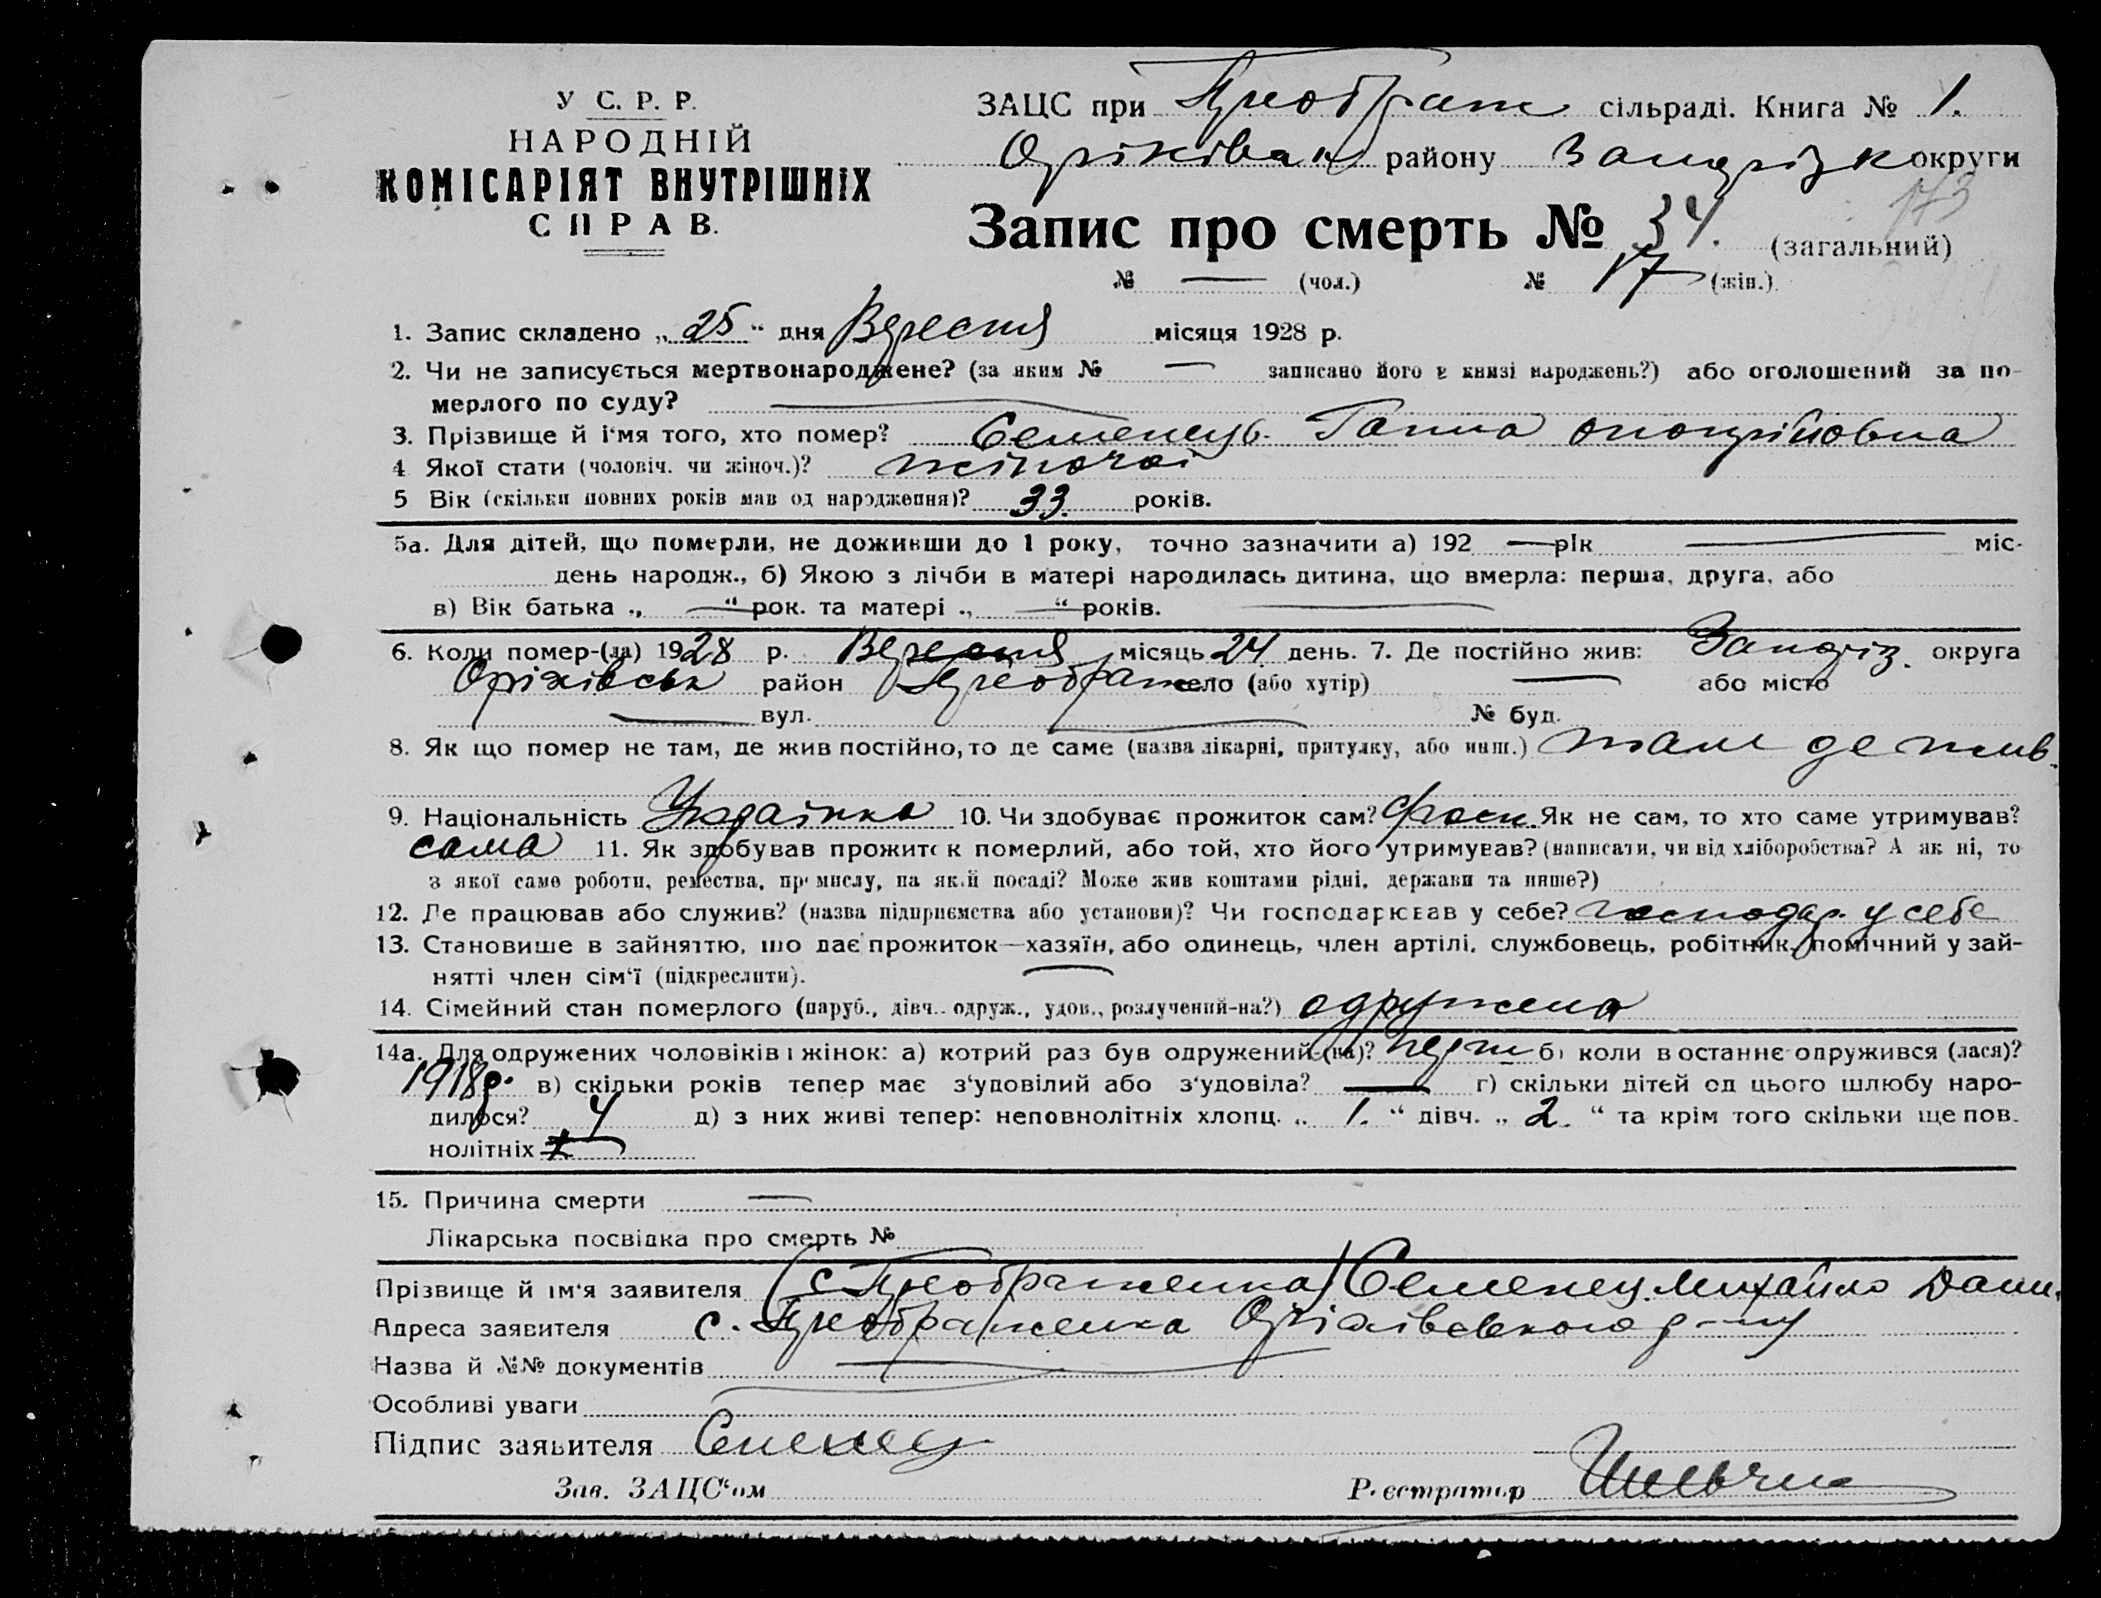 У С. Р. Р.
НАРОДНІЙ
КОМІСАРІЯТ ВНУТРІШНІХ
СПРАВ.
ЗАЦС при Преображ сільраді. Книга № 1.
Оріхівськ району Запоріжк округи
173
Запис про смерть № 34. (загальний)
№ — (чол.) № 17 (жін.)
1. Запис складено „ 25 “ дня Вересня місяця 1928 р.
2. Чи не записується мертвонароджене? (за яким № — записано його в книзі народжень?) або оголошений за по-
мерлого по суду? —
3. Прізвище й ім'я того, хто помер? Семенець Ганна Оноприйовна
4 Якої статі (чоловіч. чи жіноч.)? жіночої
5 Вік (скільки повних років мав од народження)? 33. років.
5а. Для дітей, що померли, не доживши до 1 року, точно зазначити а) 192 — рік — міс.
день народж., б) Якою з лічби в матері народилась дитина, що вмерла: перша, друга, або
в) Вік батька „ — “ рок. та матері „ — “ років. —
6. Коли помер-(ла) 1928 р. Вересня місяць 24 день. 7. Де постійно жив: Запоріз. округа
Оріхівськ район Преображ село (або хутір) — або місто
— вул. — № буд.
8. Як що помер не там, де жив постійно, то де саме (назва лікарні, притулку, або инш.) там де жив.
9. Національність Українка 10. Чи здобуває прожиток сам? Як не сам, то хто саме утримував?
сама 11. Як здобував прожиток померлий, або той, хто його утримував? (написати, чи від хліборобства? А як ні, то
з якої саме роботи, ремества, промислу, на якій посаді? Може жив коштами рідні, держави та инше?)
12. Де працював або служив? (назва підприємства або установи)? Чи господарював у себе? господар. у себе
13. Становище в зайняттю, що дає прожиток—хазяїн, або одинець, член артілі, службовець, робітник, помічний у зай-
нятті член сім'ї (підкреслити).
14. Сімейний стан померлого (паруб., дівч. одруж., удов., розлучений-на?) одружена
14а. Для одружених чоловіків і жінок: а) котрий раз був одружений-(на)? перш б) коли востаннє одружився (лася)?
1918р. в) скільки років тепер має з'удовілий або з'удовіла? — г) скільки дітей од цього шлюбу наро-
дилося? 4 д) з них живі тепер: неповнолітніх хлопц. „ 1. “ дівч. „ 2. “ та крім того скільки ще пов.
нолітніх —
15. Причина смерти —
Лікарська посвідка про смерть №
Прізвище й ім'я заявителя (с Преображенка) Семенец Михайло Дани.
Адреса заявителя с. Преображенка Оріхівського р-ну
Назва й №№ документів —
Особливі уваги
Підпис заявителя Семенец
Зав. ЗАЦС'ом Реєстратор